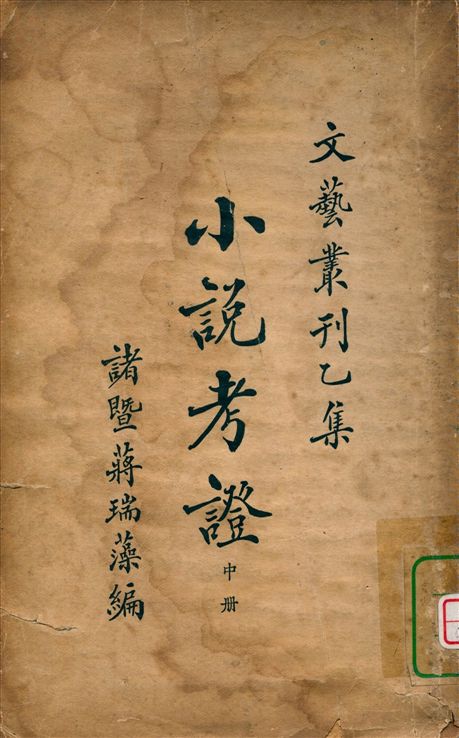 文藝叢刊乙集
小說考證
中册
諸暨蔣瑞藻編